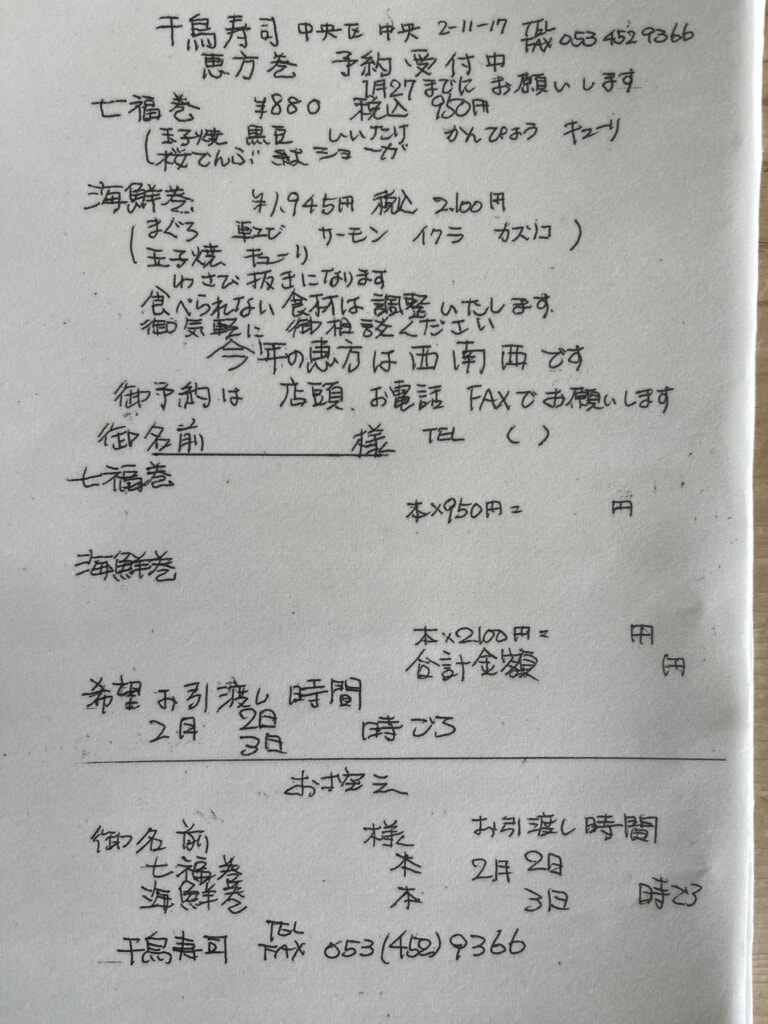 千鳥寿司 中央区 中央 2-11-17 TEL FAX 053 452 9366
恵方巻 予約受付中
1月27までにお願いします
七福巻 ¥880 税込 950円
(玉子焼 黒豆 しいたけ かんぴょう キューリ
桜でんぶ ショーガ
海鮮巻 ¥1,945円 税込 2,100円
(まぐろ サーモン イクラ カズノコ )
玉子焼 キューリ
わさび抜きになります
食べられない食材は調整いたします.
御気軽に御相談ください
今年の恵方は西南西です
御予約は 店頭、お電話 FAXでお願いします
御名前 様 TEL ( )
七福巻
本×950円= 円
海鮮巻
本×2,100円= 円
合計金額 円
希望お引渡し時間
2月 2日 3日 時ごろ
お控え
御名前 様 お引渡し時間
七福巻 本 2月 2日
海鮮巻 本 3日 時ごろ
千鳥寿司 TEL FAX 053(452)9366